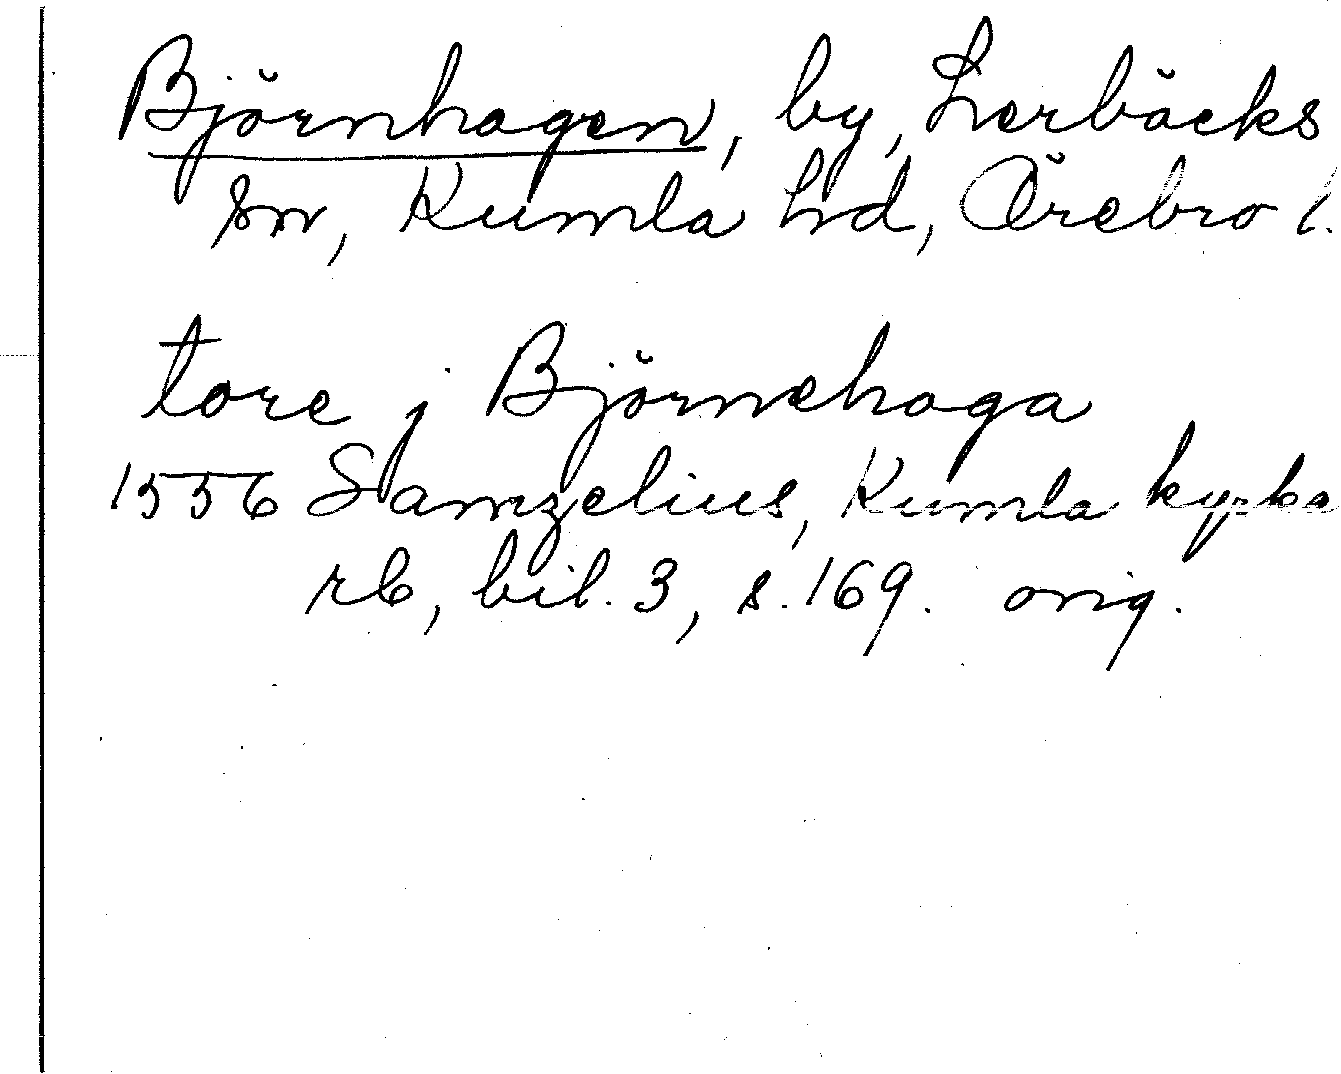 Björnhagen, by, Lerbäcks
sn, Kumla hd, Örebro l.
tore j Björnehaga
1556 Samzelius, Kumla kyrka
rb, bil. 3, s. 169. orig.